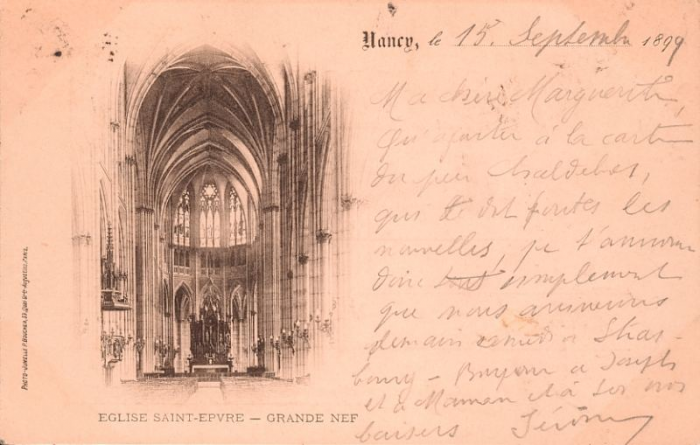 Nancy, le 15. Septembre 1899
Ma chère Marguerite,
Qu'ajouter à la carte
du père
qui te dit toutes les
nouvelles, je t'annonce
donc tout simplement
que nous arriverons
demain samedi à Stras-
bourg - Bonjour à Joseph
et à Maman et à toi
baisers
EGLISE SAINT-EPVRE — GRANDE NEF